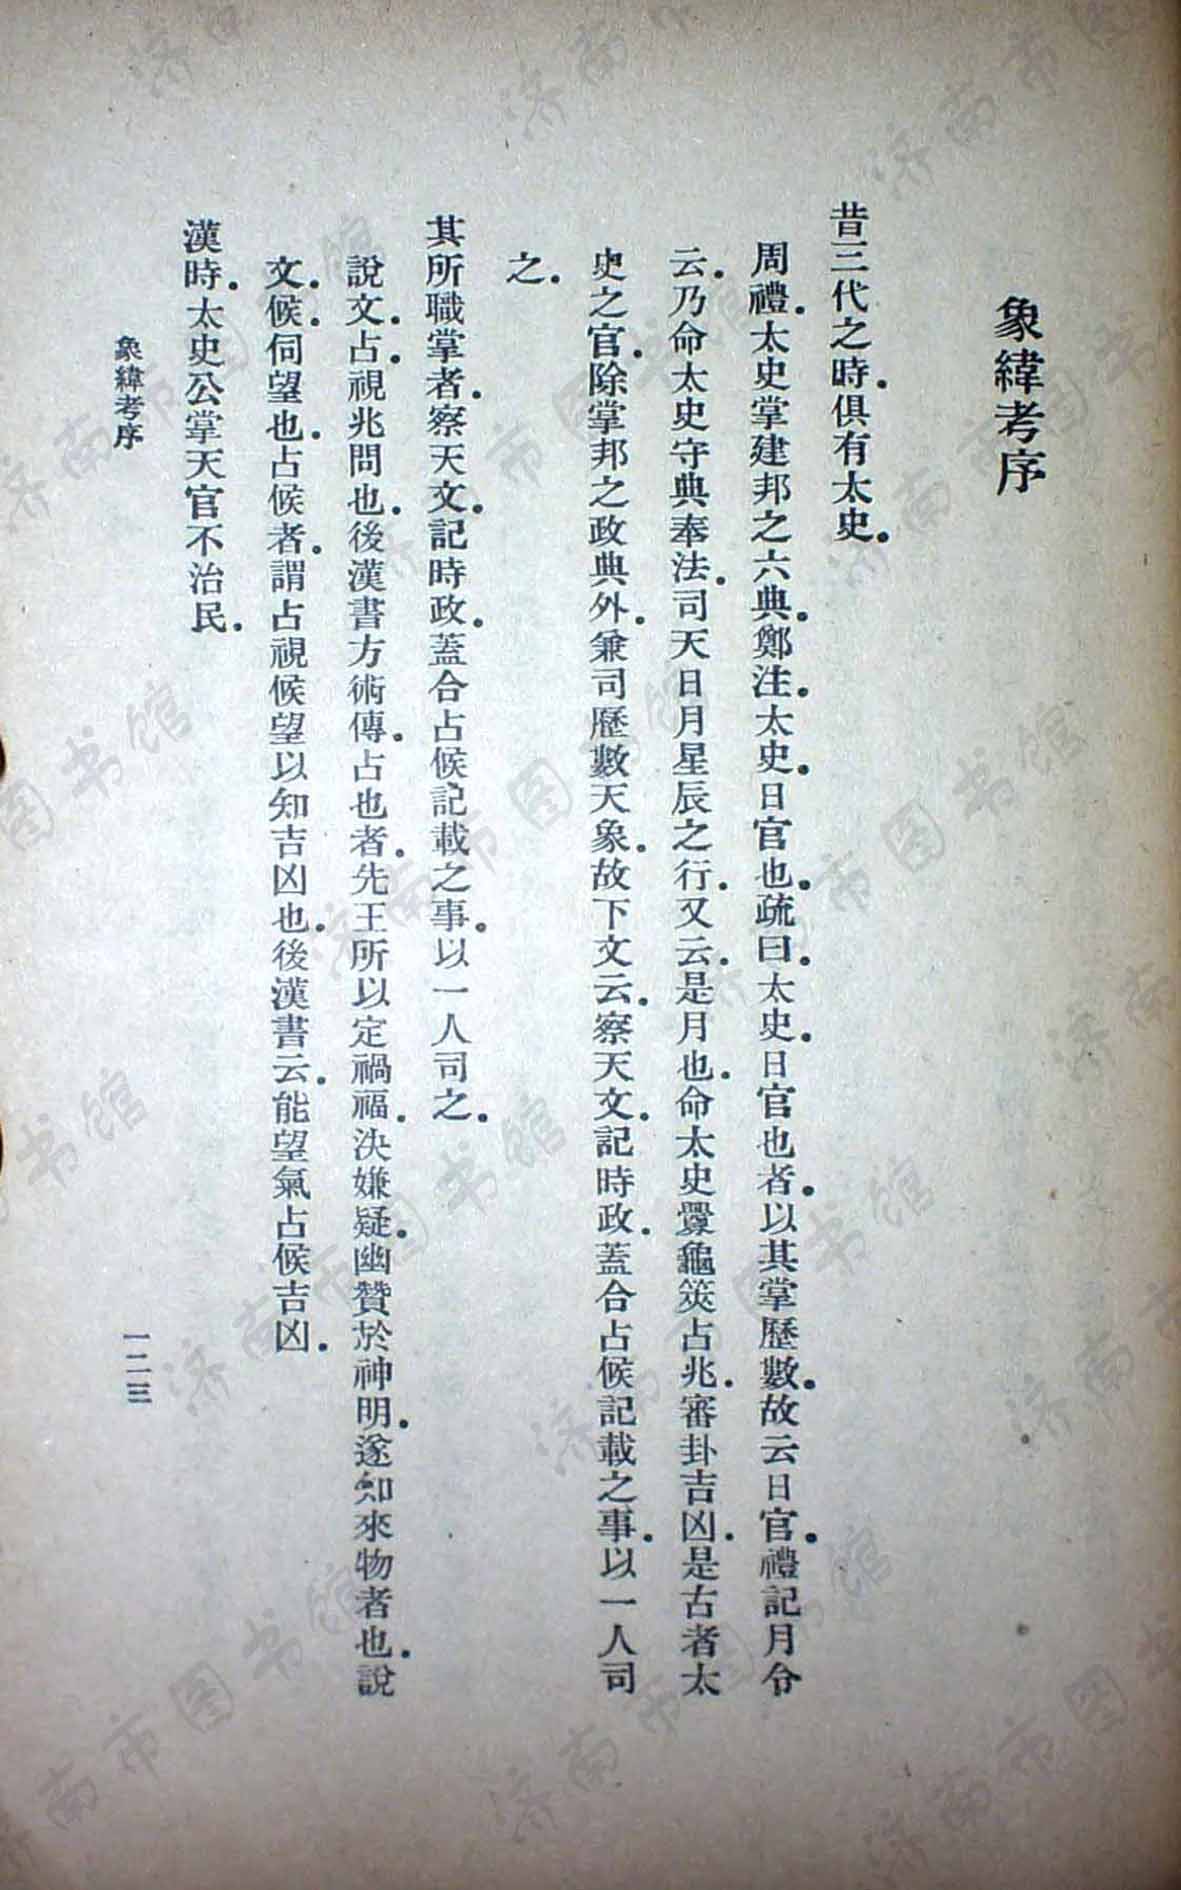 象緯考序
昔三代之時．俱有太史．
周禮．太史掌建邦之六典．鄭注．太史．日官也．疏曰．太史．日官也者．以其掌歷數．故云日官．禮記月令
云．乃命太史守典奉法．司天日月星辰之行．又云．是月也．命太史釁龜筴占兆．審卦吉凶．是古者太
史之官．除掌邦之政典外．兼司歷數天象．故下文云．察天文．記時政．蓋合占候記載之事．以一人司
之．
其所職掌者．察天文．記時政．蓋合占候記載之事．以一人司之．
說文．占．視兆問也．後漢書方術傳．占也者．先王所以定禍福．決嫌疑．幽贊於神明．遂知來物者也．說
文．候．伺望也．占候者．謂占視候望以知吉凶也．後漢書云．能望氣占候吉凶．
漢時．太史公掌天官不治民．
象緯考序
一二三
济南市图书馆